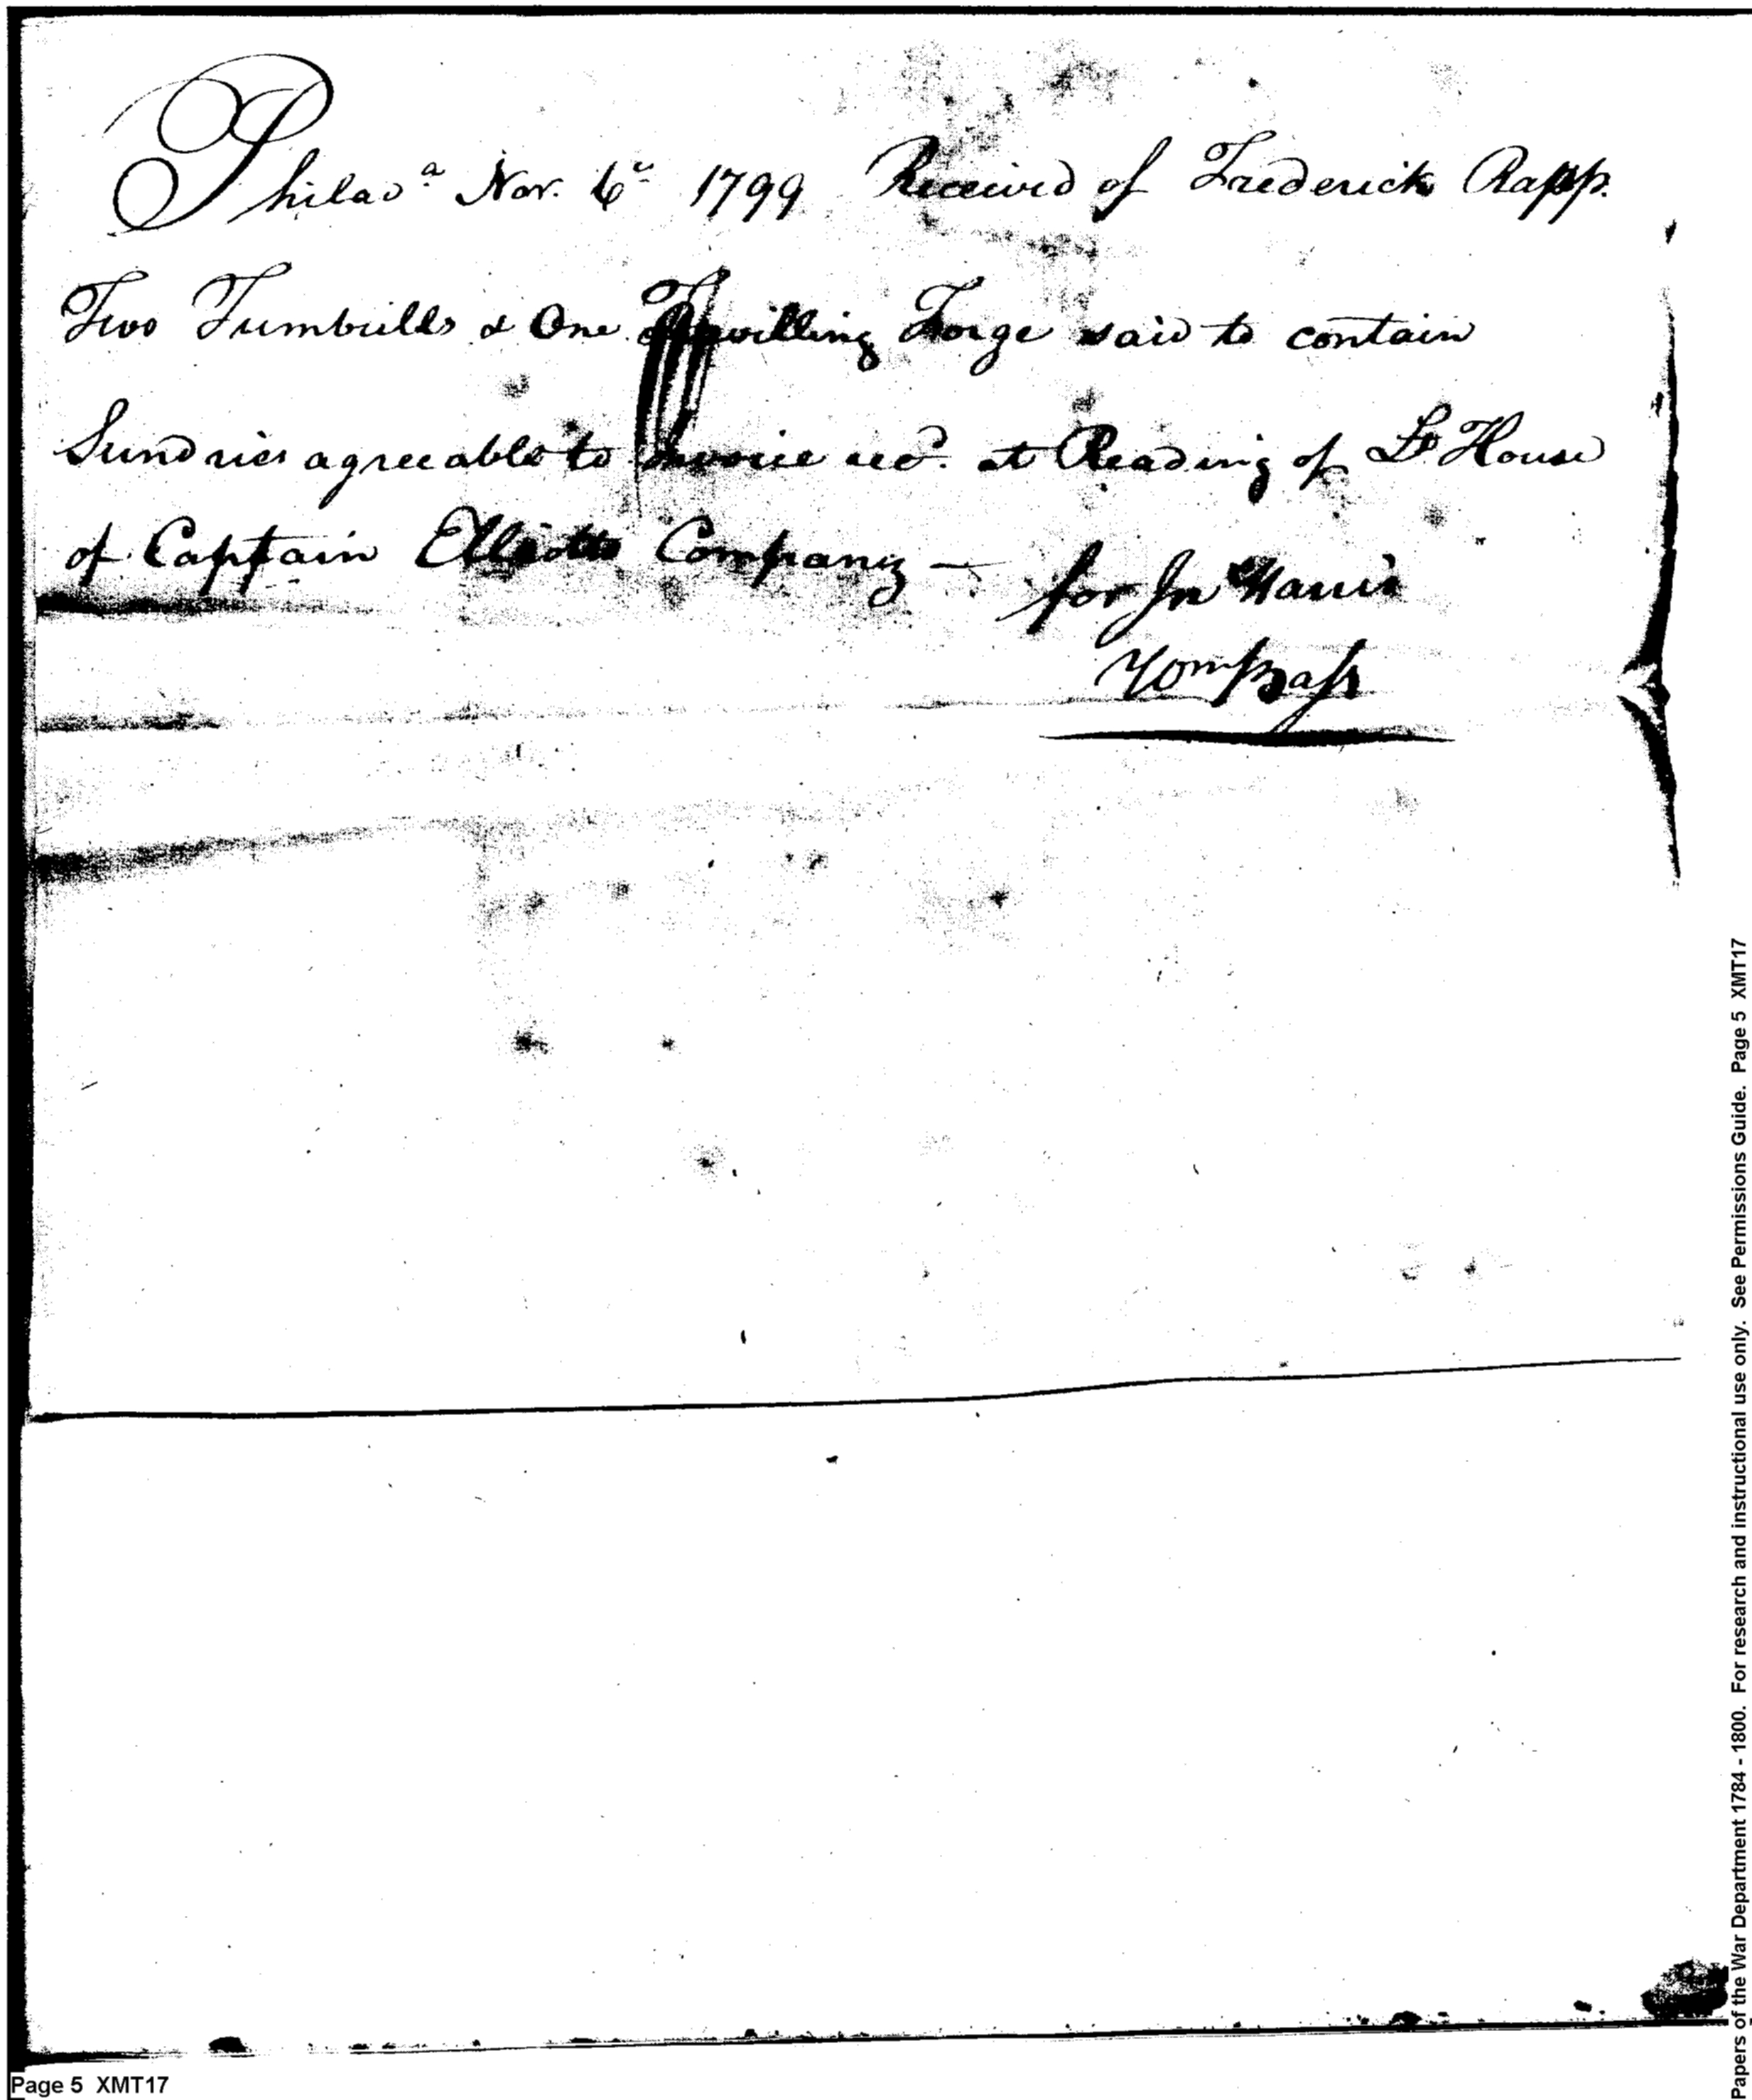 Philad.a Nov. 6th 1799 Received of Frederick Rapp.
Two Tumbrills & One Travilling Forge said to contain
Sundries agreeable to Invoice recd. at Reading of Lt House
of Captain Elliotts Company —
for Jn Harris
Wm Bass
Papers of the War Department 1784 - 1800. For research and instructional use only. See Permissions Guide. Page 5 XMT17
Page 5 XMT17